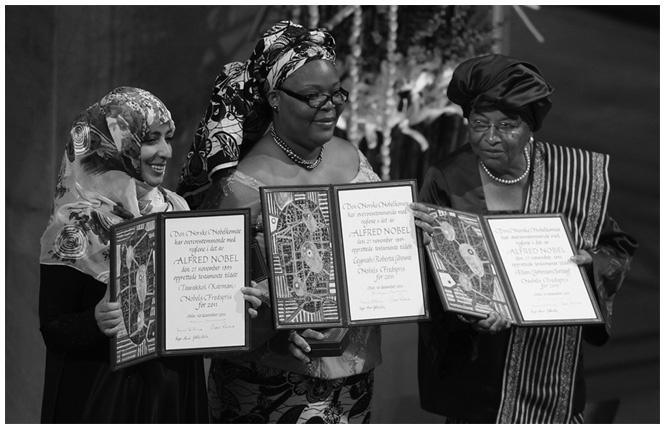 Den Norske Nobelkomite
har overensstemmende med
reglene i det av
ALFRED NOBEL
den 27. november 1895
opprettede testamente tildelt
Tawakkol Karman
Nobels Fredspris
for 2011
Oslo, 10 desember 2011
Den Norske Nobelkomite
har overensstemmende med
reglene i det av
ALFRED NOBEL
den 27. november 1895
opprettede testamente tildelt
Leymah Roberta Gbowee
Nobels Fredspris
for 2011
Oslo, 10 desember 2011
Den Norske Nobelkomite
har overensstemmende med
reglene i det av
ALFRED NOBEL
den 27. november 1895
opprettede testamente tildelt
Ellen Johnson Sirleaf
Nobels Fredspris
for 2011
Oslo, 10 desember 2011